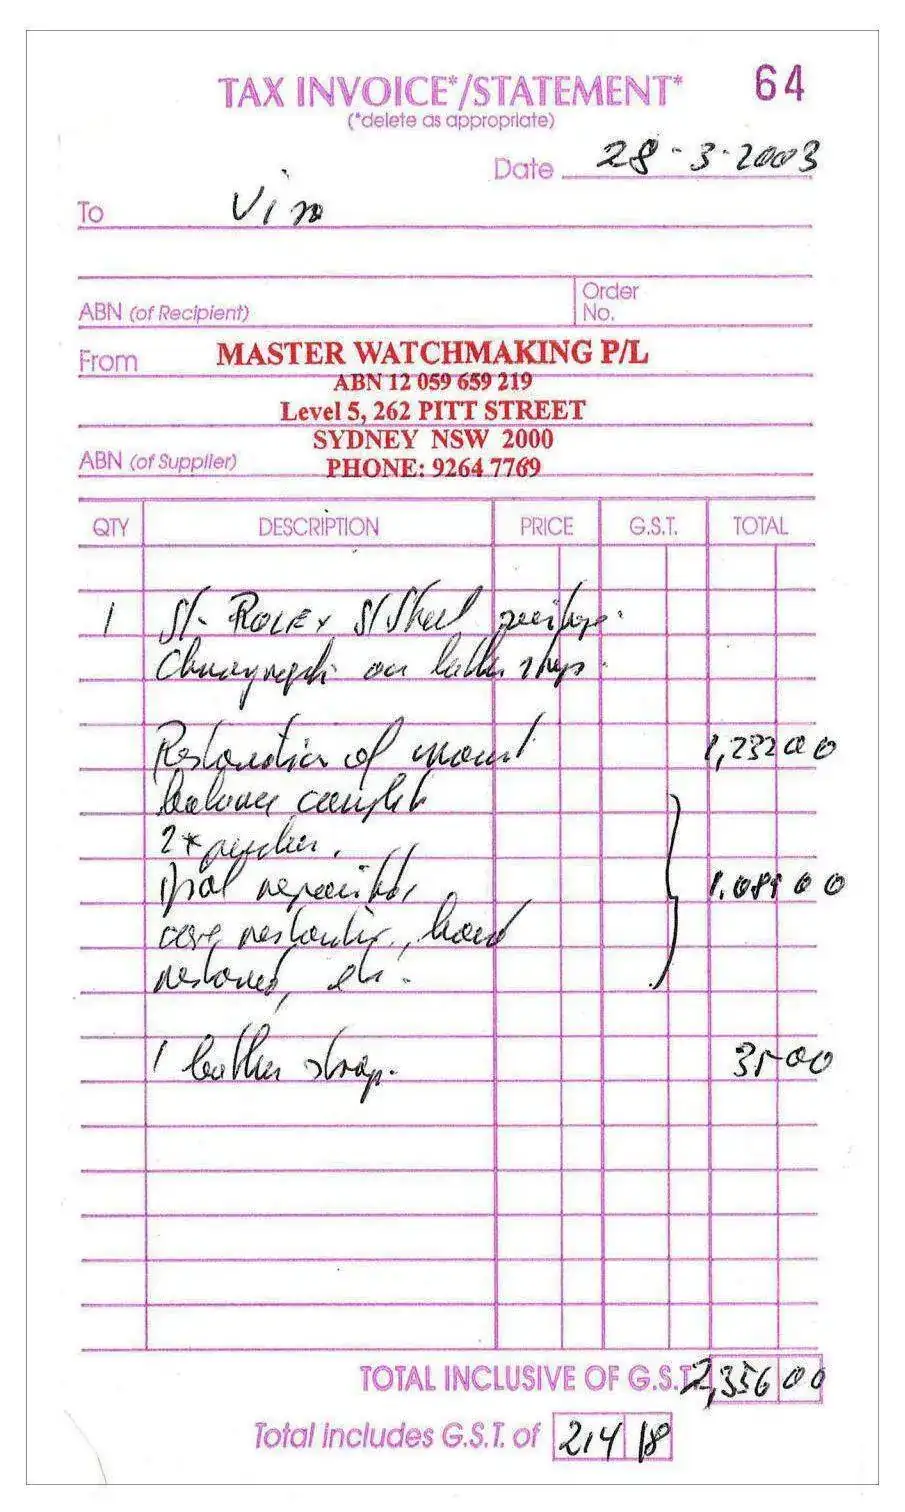 TAX INVOICE*/STATEMENT* 64
(*delete as appropriate)
Date 28-3-2003
To Vin
ABN (of Recipient) Order No.
From MASTER WATCHMAKING P/L
ABN 12 059 659 219
Level 5, 262 PITT STREET
SYDNEY NSW 2000
ABN (of Supplier) PHONE: 9264 7769
QTY DESCRIPTION PRICE G.S.T. TOTAL
1 ROLEX S/Steel
on leather
Restoration of 1,232 00
balance
2*
Dial 1,089 00
case restoration, hand
restored, etc.
1 leather strap. 35-00
TOTAL INCLUSIVE OF G.S.T. 2,356 00
Total includes G.S.T. of 214 18